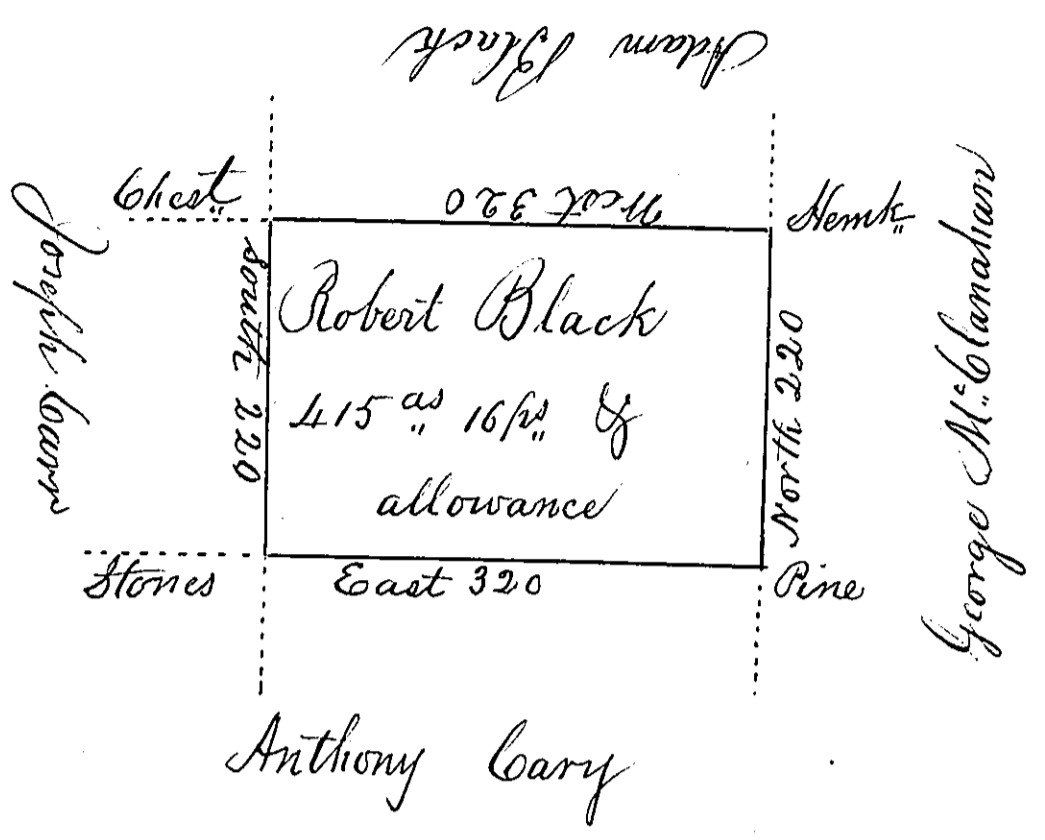 Adam Black
Chest"
West 320
Hemk"
Joseph Carr
South 220
Robert Black
415 as" 16 ps" &
allowance
North 220
George Mc. Clanahan
Stones
East 320
Pine
Anthony Cary